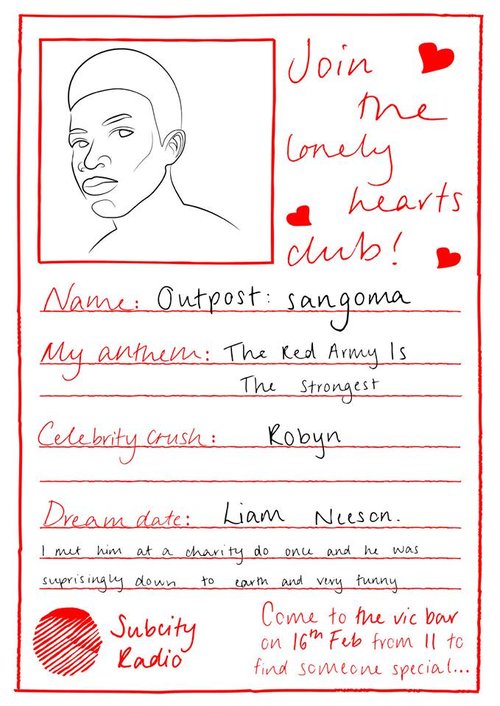 Join
the
lonely
hearts
club!
Name: Outpost: sangoma
My anthem: The Red Army Is
The Strongest
Celebrity crush: Robyn
Dream date: Liam Neeson.
I met him at a charity do once and he was
suprisingly down to earth and very funny
Subcity
Radio
Come to the vic bar
on 16th Feb from 11 to
find someone special...